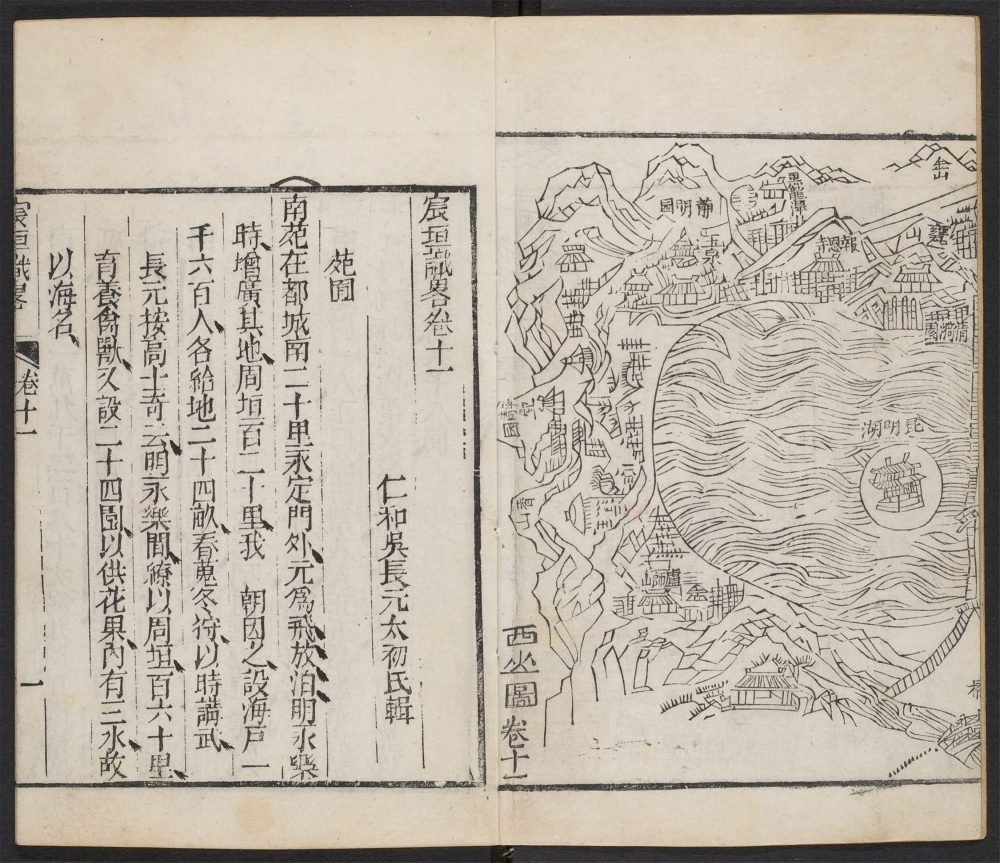 金山
甕山
黑龍潭
靜明園
玉泉
報恩寺
清漪園
昆明湖
香山
盧師山
橋
西山圖
卷十一
宸垣識畧卷十一
仁和吳長元太初氏輯
苑囿
南苑在都城南二十里永定門外、元為飛放泊、明永樂
時、增廣其地、周垣百二十里、我　朝因之、設海戸一
千六百人、各給地二十四畝、春蒐冬狩、以時講武、
長元按高士奇云、明永樂間、繚以周垣百六十里、
育養禽獸、又設二十四園、以供花果、內有三水、故
以海名、
宸垣識畧
卷十一
一